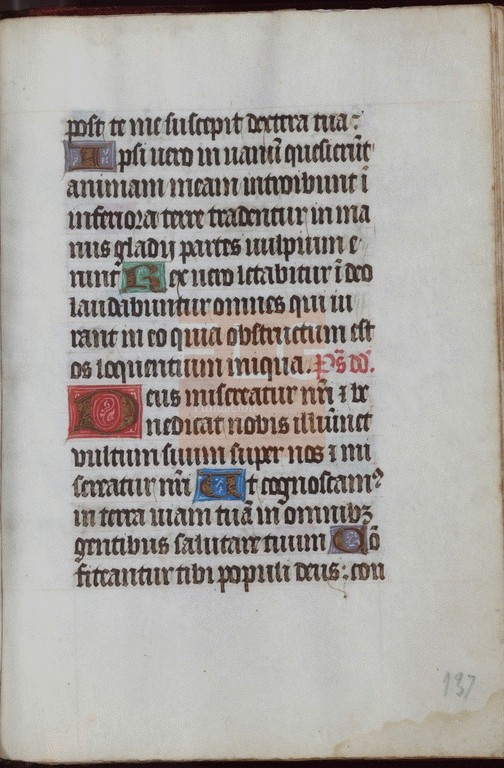 post te me suscepit dextera tua:
Ipsi uero in uanū quesierūt
animam meam introibunt ī
inferiora terre tradentur in ma
nus gladij partes uulpium e
runt Rex uero letabitur ī deo
laudabuntur omnes qui iu
rant in eo quia obstructum est
os loquentium iniqua. Ps̄ dd̄.
Deus misereatur nr̄i ⁊ be
nedicat nobis illūīnet
vultum suum super nos ⁊ mi
sereatur nr̄i Ut cognoscamꝰ
in terra uiam tuā in omnibꝫ
gentibus salutare tuum Cō
fiteantur tibi populi deus: con
137